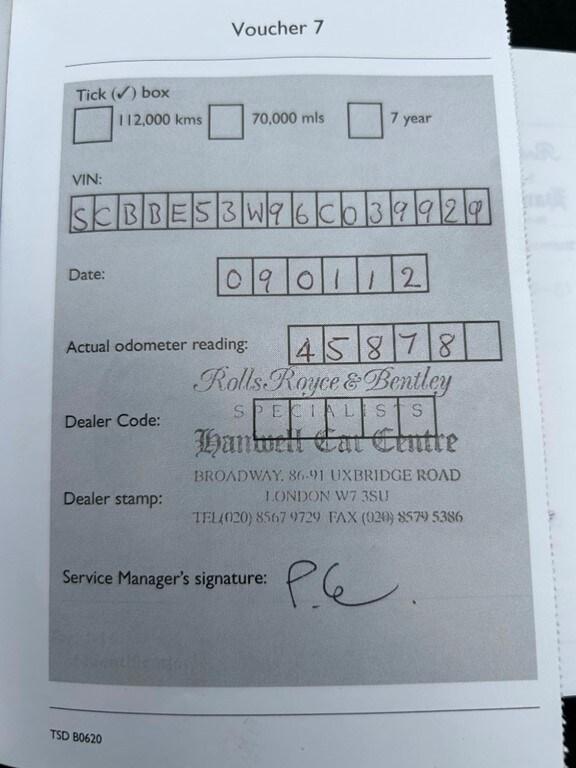 Voucher 7
Tick (✓) box
112,000 kms 70,000 mls 7 year
VIN:
SCBBE53W96C039929
Date:
090112
Actual odometer reading: 45878
Rolls-Royce & Bentley
SPECIALISTS
Dealer Code:
Hanwell Car Centre
BROADWAY, 86-91 UXBRIDGE ROAD
Dealer stamp: LONDON W7 3SU
TEL(020) 8567 9729 FAX (020) 8579 5386
Service Manager's signature:
TSD B0620